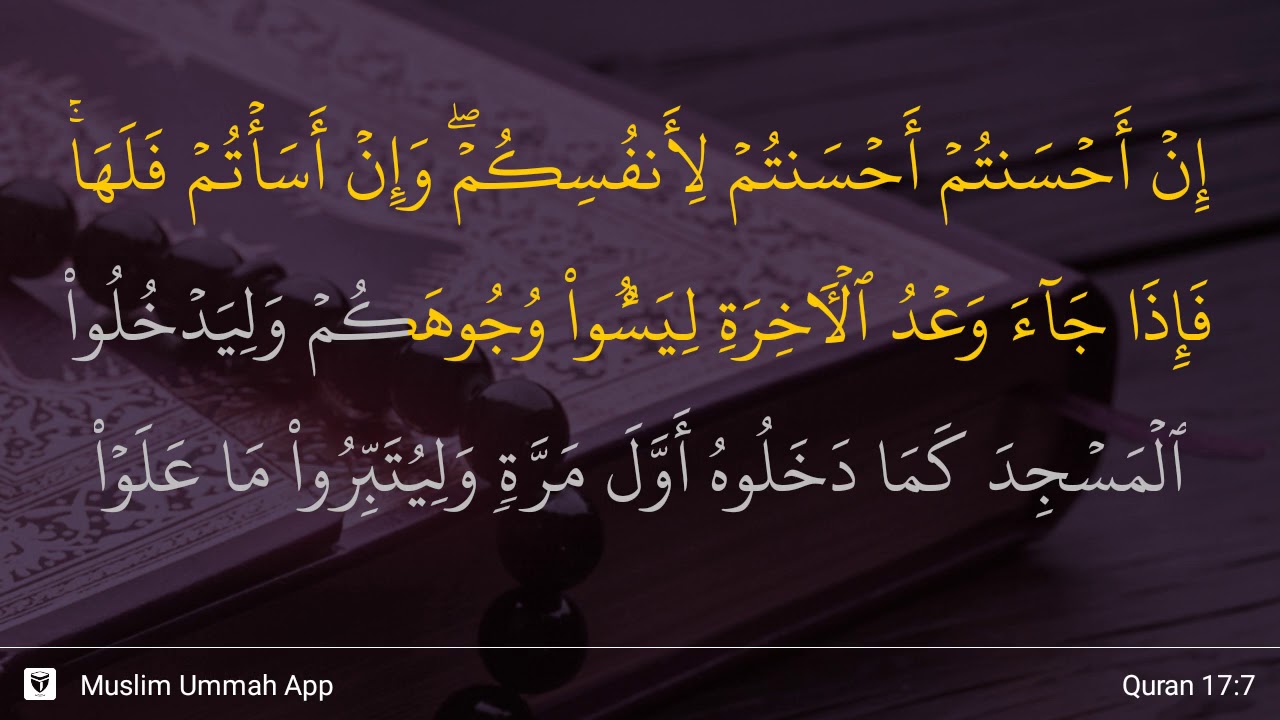 إِنْ أَحْسَنتُمْ أَحْسَنتُمْ لِأَنفُسِكُمْ ۖ وَإِنْ أَسَأْتُمْ فَلَهَا ۚ
فَإِذَا جَآءَ وَعْدُ ٱلْـَٔاخِرَةِ لِيَسُـۥٓـُٔوا۟ وُجُوهَكُمْ وَلِيَدْخُلُوا۟
ٱلْمَسْجِدَ كَمَا دَخَلُوهُ أَوَّلَ مَرَّةٍ وَلِيُتَبِّرُوا۟ مَا عَلَوْا۟
Muslim Ummah App
Quran 17:7